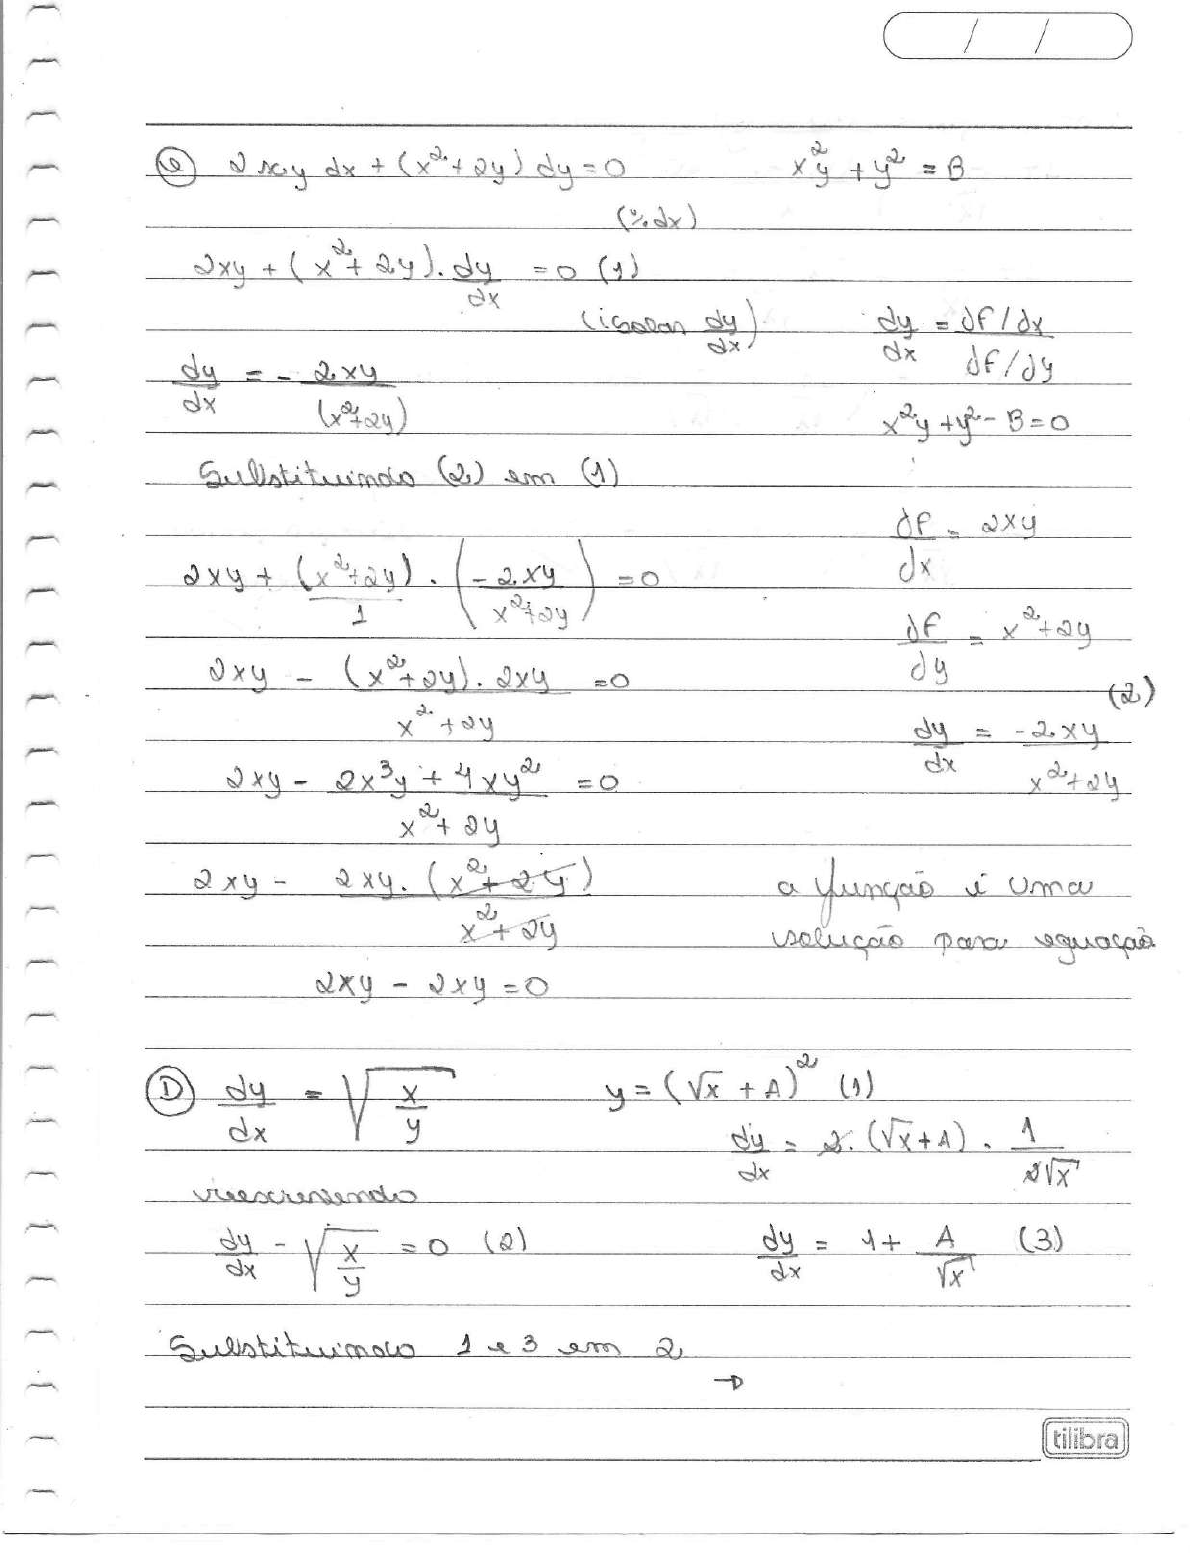 / /
(e) 2xy dx + (x² + 2y) dy = 0 x²y + y² = B
(% dx)
2xy + (x² + 2y) . dy/dx = 0 (1)
(isolar dy/dx) dy/dx = ∂F/∂x / ∂F/∂y
dy/dx = - 2xy/(x²+2y)
x²y + y² - B = 0
Substituindo (2) em (1)
∂F/∂x = 2xy
2xy + (x²+2y)/1 . (-2xy/x²+2y) = 0
∂F/∂y = x²+2y
2xy - (x²+2y) . 2xy/x²+2y = 0
(2)
dy/dx = -2xy/x²+2y
2xy - 2x³y + 4xy²/x² + 2y = 0
2xy - 2xy . (x² + 2y)/x² + 2y a função é uma
solução para equação
2xy - 2xy = 0
(D) dy/dx = √x/y y = (√x + A)² (1)
dy/dx = 2 . (√x + A) . 1/2√x
reescrevendo
dy/dx - √x/y = 0 (2) dy/dx = 1 + A/√x (3)
Substituindo 1 e 3 em 2
→
tilibra